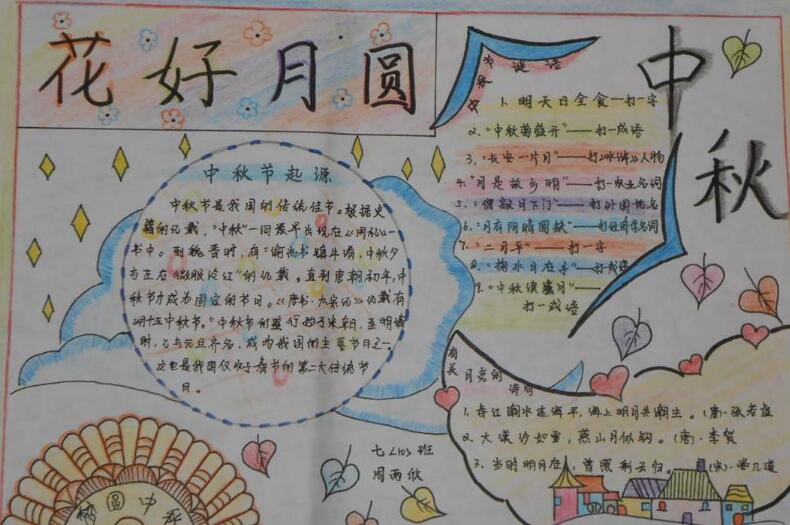 花好月圆
中秋
中秋节谜语
1. 明天日全食一打一字
2. "中秋菊盛开"——打一成语
3. "长安一片月"——打《水浒》人物
4. "月是故乡明"——打一农业名词
5. "僧敲月下门"——打外国地名
6. "月有阴晴圆缺"——打经济学名词
7. "二月平"——打一字
8. "掬水月在手"——打成语
9. "中秋演月"——
打一成语
中秋节起源
中秋节是我国的传统佳节。根据史
籍的记载，"中秋"一词最早出现在《周礼》一
书中。到魏晋时，有"谕尚书镇牛渚，中秋夕
与左右微服泛江"的记载。直到唐朝初年，中
秋节才成为固定的节日。《唐书·太宗记》记载有
"八月十五中秋节。"中秋节的盛行始于宋朝，至明清
时，已与元旦齐名，成为我国的主要节日之一
这也是我国仅次于春节的第二大传统节
日。
有关月亮的诗句
1. 春江潮水连海平，海上明月共潮生。（唐）张若虚
2. 大漠沙如雪，燕山月似钩。（唐）李贺
3. 当时明月在，曾照彩云归。（宋）晏几道
七<10>班
周雨欣
圆中秋